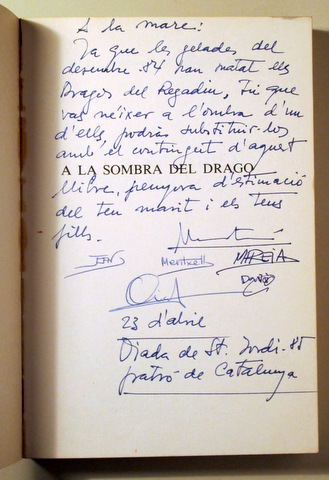 A la mare:
Ja que les gelades del
desembre 84 han matat els
Dragos del Regadiu, tu que
vas néixer a l'ombra d'un
d'ells, podràs substituir-los
amb el contingut d'aquest
A LA SOMBRA DEL DRAGO
llibre, penyora d'estimació
del teu marit i els teus
fills.
Meritxell MIREIA
DAVID
23 d'abril
Diada de St. Jordi-85
patró de Catalunya